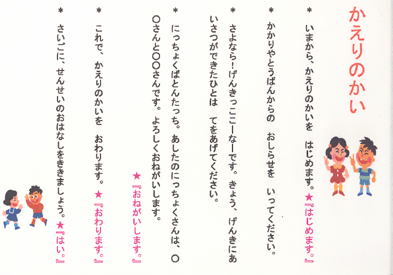 かえりのかい
＊ いまから、かえりのかいを　はじめます。★『はじめます。』
＊ かかりやとうばんからの　おしらせを　いってください。
＊ さよなら！げんきっここーなーです。きょう、げんきにあ
いさつができたひとは　てをあげてください。
＊ にっちょくばとんたっち。あしたのにっちょくさんは、〇
〇さんと〇〇さんです。よろしくおねがいします。
★『おねがいします。』
＊ これで、かえりのかいを　おわります。★『おわります。』
＊ さいごに、せんせいのおはなしをききましょう。★『はい。』